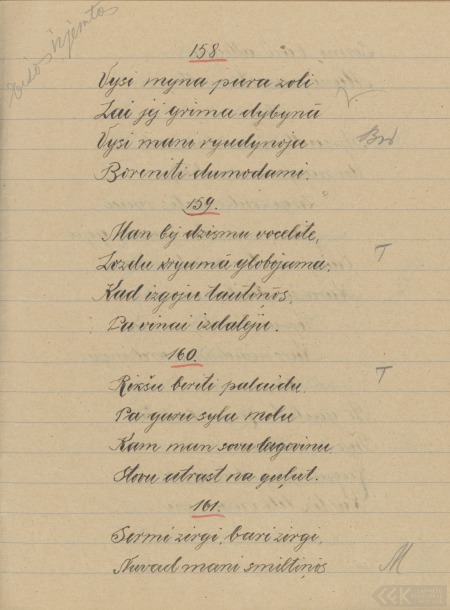 visos izjemtos
158.
Vysi myna pura zoli
Lai jej grima dybynā
Vysi mani ryudynoja
Bōreniti dumodami.
159.
Man bej dzismu vocelite,
Lozdu kryumā globojama,
Kad izgoju tautiņōs,
Pa vinai izdaleju.
160.
Rikšu beriti palaidu
Pa garu syla molu
Kam man sovu lagovinu
Slovu atrast na guļut.
161.
Sermi zirgi, bari zirgi,
Nuvad mani smiltiņōs
T
T
M